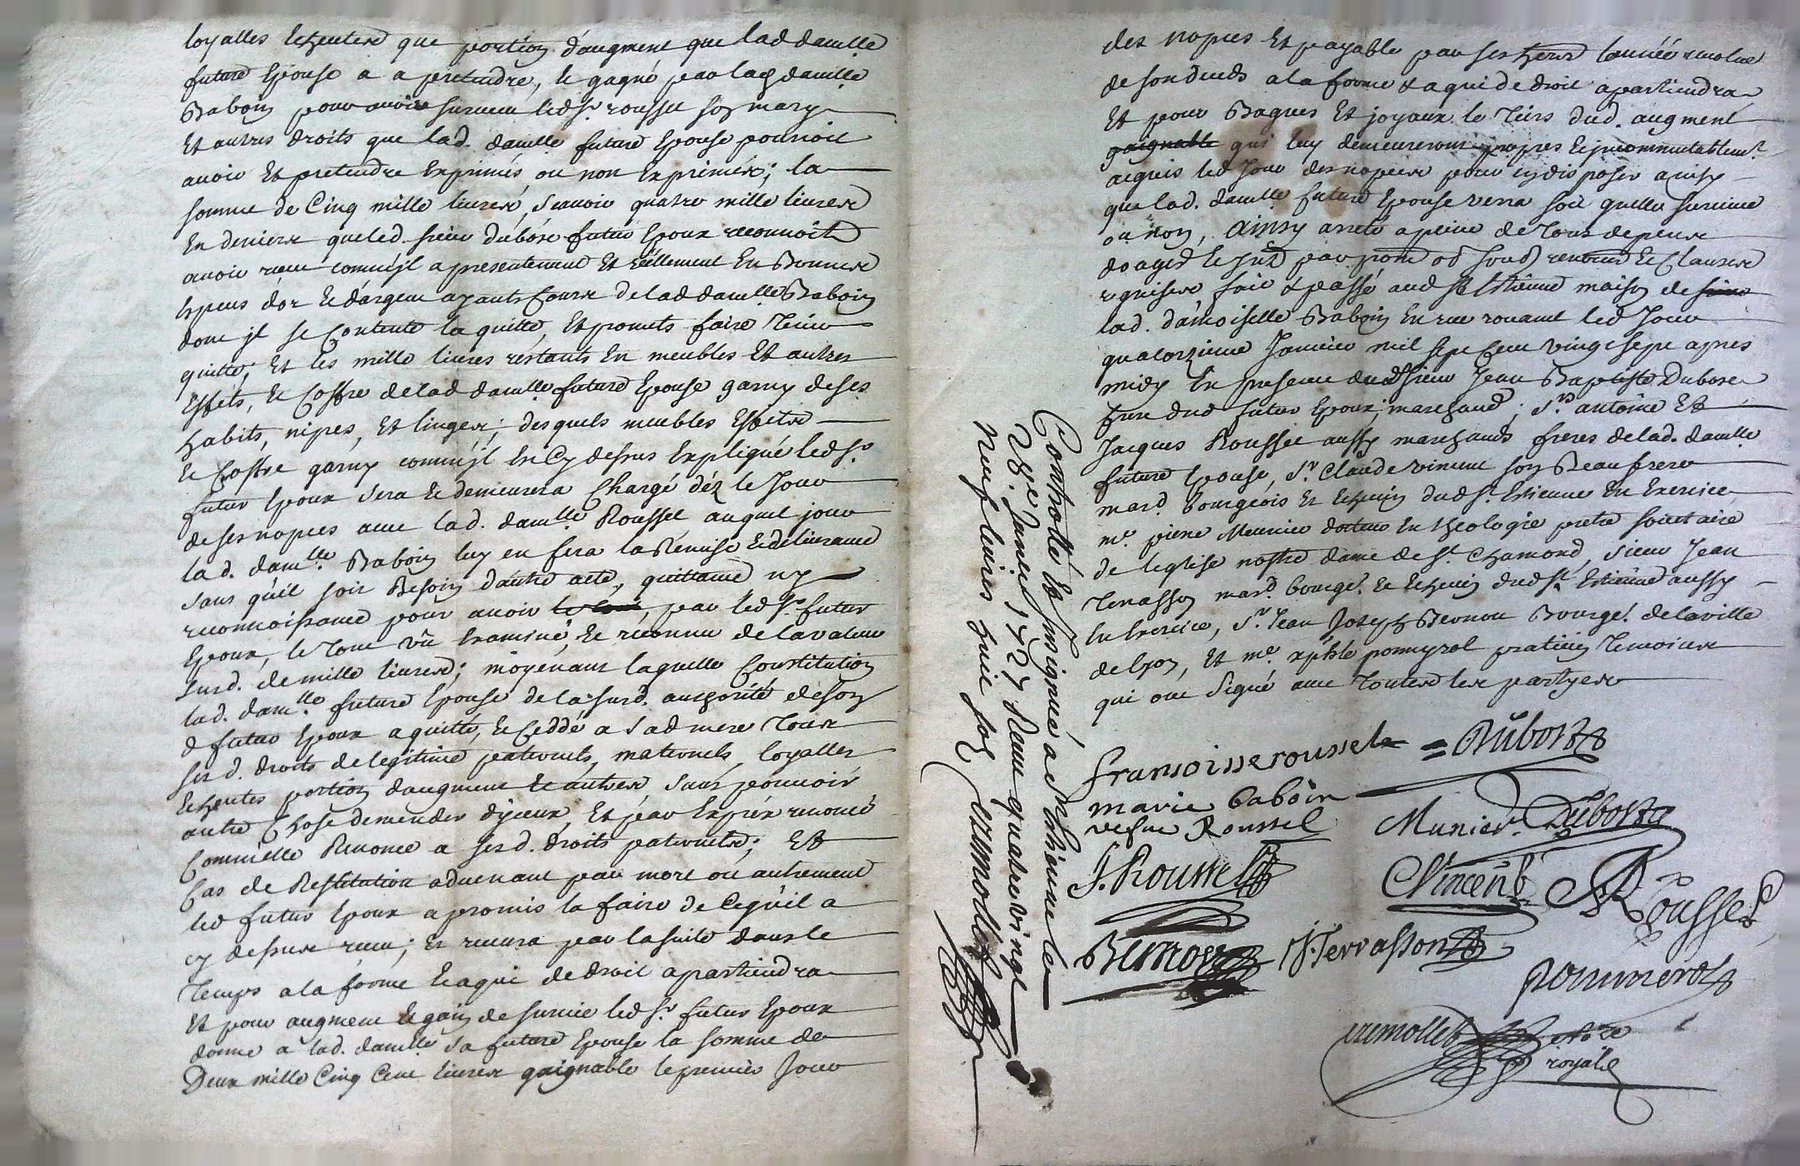 loyalles Echeutes que portion d'augment que lad damlle
future Epouse a a pretendre, le gagné par lad damlle
Baboin pour avoir survecu led sr. roussel son mary
Et autres droits que lad. damlle future Epouse pourroit
avoir Et pretendre Exprimés ou non Exprimés; la
somme de Cinq mille livres, sçavoir quatre mille livres
En deniers que led. sieur dubosc futur Epoux reconnoit
avoir receu comm'jl a presentement Et réellement En Bonnes
Especes d'or Et d'argent ayants Cours de lad damlle Baboin
dont jl se Contente la quitte, Et promets faire tenir
quitte, Et les mille livres réstants En meubles Et autres
Effets, Et Coffre de lad damlle future Epouse garny de ses
habits, nipes, Et linges; desquels meubles Effets
Et Coffre garny comm'jl En Cy dessus Expliqué led sr.
futur Epoux sera Et demeurera Chargé déz le Jour
de ses nopces avec lad. damlle Roussel auquel jour
lad. damlle. Baboin luy en fera la Remise Et délivrance
sans qu'il soit Besoin d'autre acte, quittance ny
reconnoissance pour avoir le tout, par led sr. futur
Epoux, le tout vû Examiné, Et reconnu de la valeur
susd. de mille livres; moyenant laquelle Constitution
lad. damlle future Epouse de la susd. authorité de son
d futur Epoux a quitté, Et Ceddé a sad mere tous
sesd. droits de legitime paternels, maternels, loyalles
Echeutes portion d'augment Et autres sans pouvoir
autre Chose demander d'jceux, Et par Exprés renoncé
Comm'elle Renonce a sesd. droits paternels; Et
Cas de Restitution advenant par mort ou autrement
led futur Epoux a promis la faire de Ce qu'il a
cy dessus receu; Et recevra par la suite dans le
temps a la forme Et a qui de droit apartiendra
Et pour augment Et gain de survie led sr. futur Epoux
donne a lad. damlle sa future Epouse la somme de
Deux mille Cinq Cent livres gaignable le premier Jour
des nopces Et payable par ses hoirs l'année revolue
de son deceds a la forme & a qui de droit apartiendra
Et pour Bagues Et joyaux le tiers dud. augment
gaignable qui luy demeureront propres Et jncommutablemt.
acquis led Jour des nopces pour en disposer ainsy
que lad. damlle future Epouse verra soit qu'elle survive
ou non, Ainsy arreté a peine de tous depens
requises fait & passé aud St Estienne maison de
lad. damoiselle Baboin En rue roannel led Jour
quatorzieme Janvier mil sept Cent vingt sept apres
midy En presence dud sieur Jean Baptiste Dubosc
frere dud futur Epoux marchand; Srs antoine Et
Jacques Roussel aussy marchands freres de lad. damlle
future Epouse, Sr Claude vincent son Beaufrere
mard. Bourgeois Et Echevin dud St. Estienne En Exercice
Me. pierre Meunier docteur En theologie pretre societaire
de l'eglise nostre dame de St. Chamond, sieur Jean
Terrasson mard. bourgs. Et Echevin dud St. Estienne aussy
En Exercice, Sr. Jean Joseph Bernou Bourgs. de la ville
de lyon, Et me. xphle pommyrol praticien temoins
qui ont signé avec toutes les partyes
Controllé Et Insignué a St Estienne le
28e Janvier 1727 Receu quatre vingt
neuf livres huit sols Cremollet
fransoisse roussel = Dubosc
marie baboin
vefve Roussel
Munier Dubosc
J. Roussel
CVincent
A Roussel
Bernou J. Terrasson
Pommerol
cremollet nore
royal